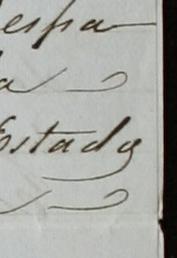 espa
a
Estado